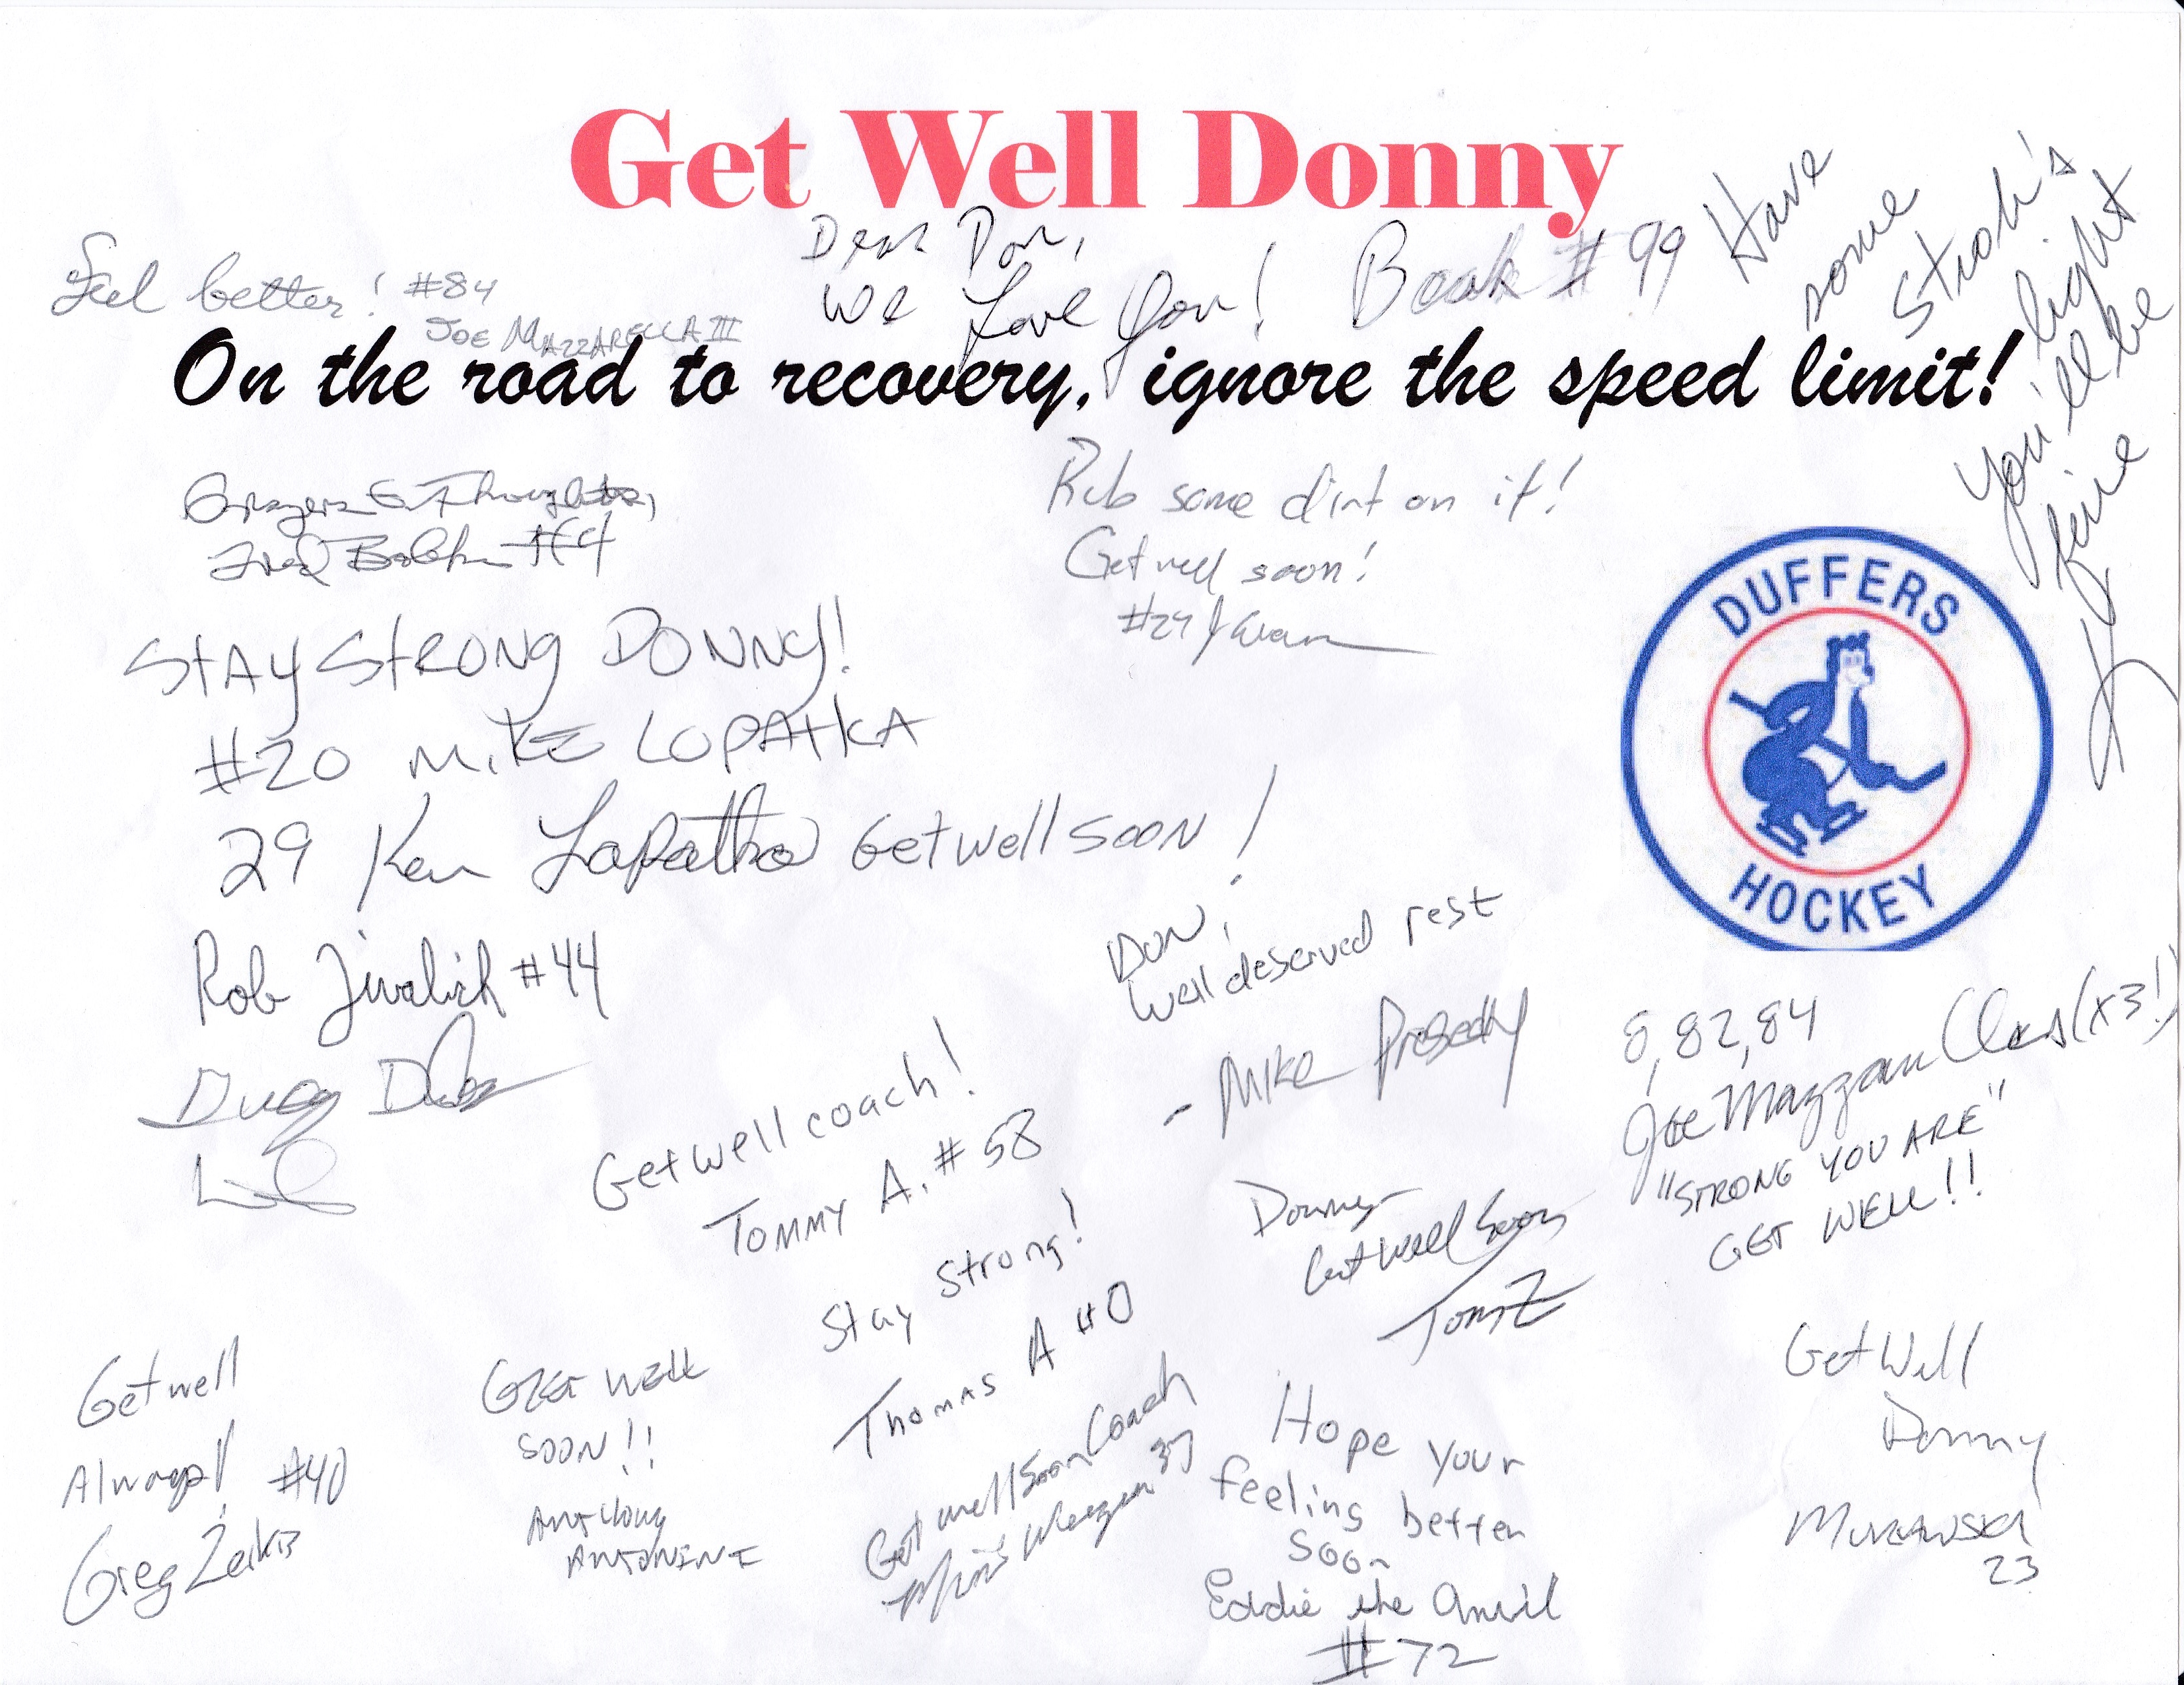 Get Well Donny
Feel better! #84
JOE MAZZARELLA III
Dear Don,
We Love You!
# 99
Have
some
Stroh's
light
You'll be
fine
On the road to recovery, ignore the speed limit!
Prayers & Thoughts,
Fred
Rub some dirt on it!
Get well soon!
DUFFERS
HOCKEY
STAY STRONG DONNY!
#20 MIKE LOPATKA
29 Ken Lopatka Get well soon!
Rob #44
DON,
Well deserved rest
- MIKE
8, 82, 84
Joe (x3!)
"STRONG YOU ARE"
GET WELL!!
Get well coach!
TOMMY A. #58
Stay Strong!
Thomas A #0
Donny
Get Well Soon
Tom Z
Get well
Always! #40
Greg
GET WELL
SOON!!
ANTHONY
ANTONINI
Get well Soon Coach
37
Hope your
feeling better
soon
Eddie the Anvil
#72
Get Well
Donny
MURAWSKI
23